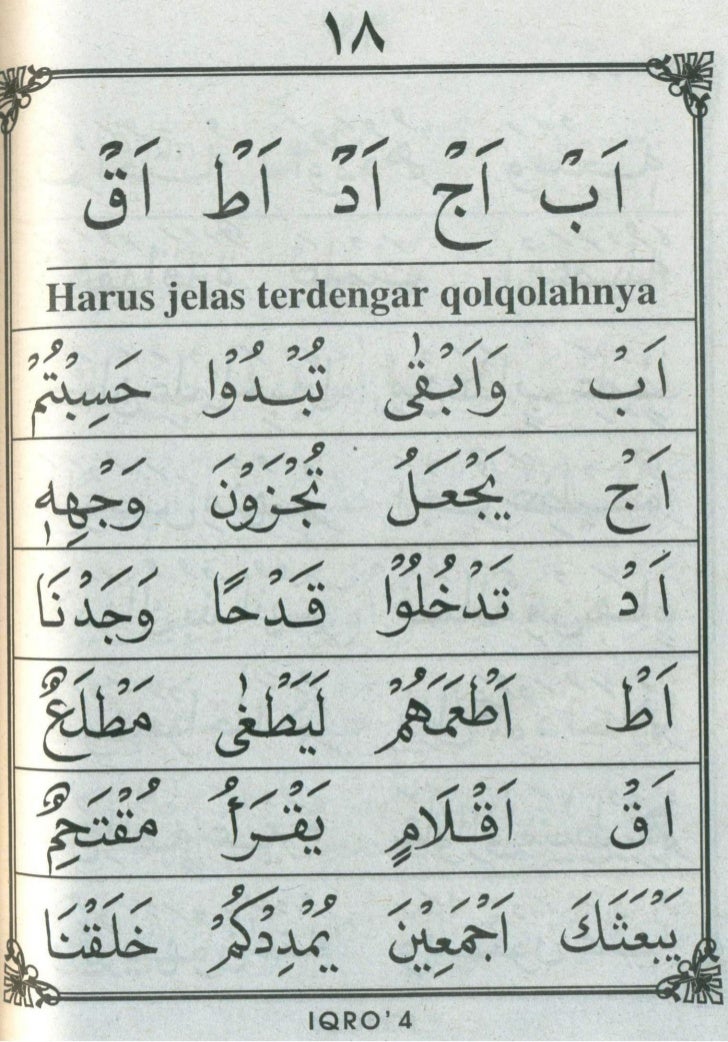 ١٨
اَبْ اَجْ اَدْ اَطْ اَقْ
Harus jelas terdengar qolqolahnya
اَبْ وَاَبْقٰى تُبْدُوْا حَسِبْتُمْ
اَجْ يَجْعَلُ تُجْزَوْنَ وَجْهِهٖ
اَدْ تَدْخُلُوْا قَدْحًا وَجَدْنَا
اَطْ اَطْعَمَهُمْ لَيَطْغٰى مَطْلَعٌ
اَقْ اَقْلَامٍ يَقْرَأُ مُقْتَحِمٌ
يَبْعَثَكَ اَجْمَعِيْنَ يُمْدِدْكُمْ خَلَقْنَا
IQRO' 4